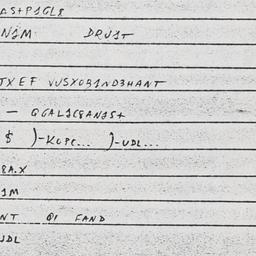 AS+P1GL8
N1M DRU1T
TXEF VUSXOR1ND3HANT
— GGAL1C8AN1S+
$ )-KOPE... )-UDL...
8A.X
1M
NT 01 FAND
UDL